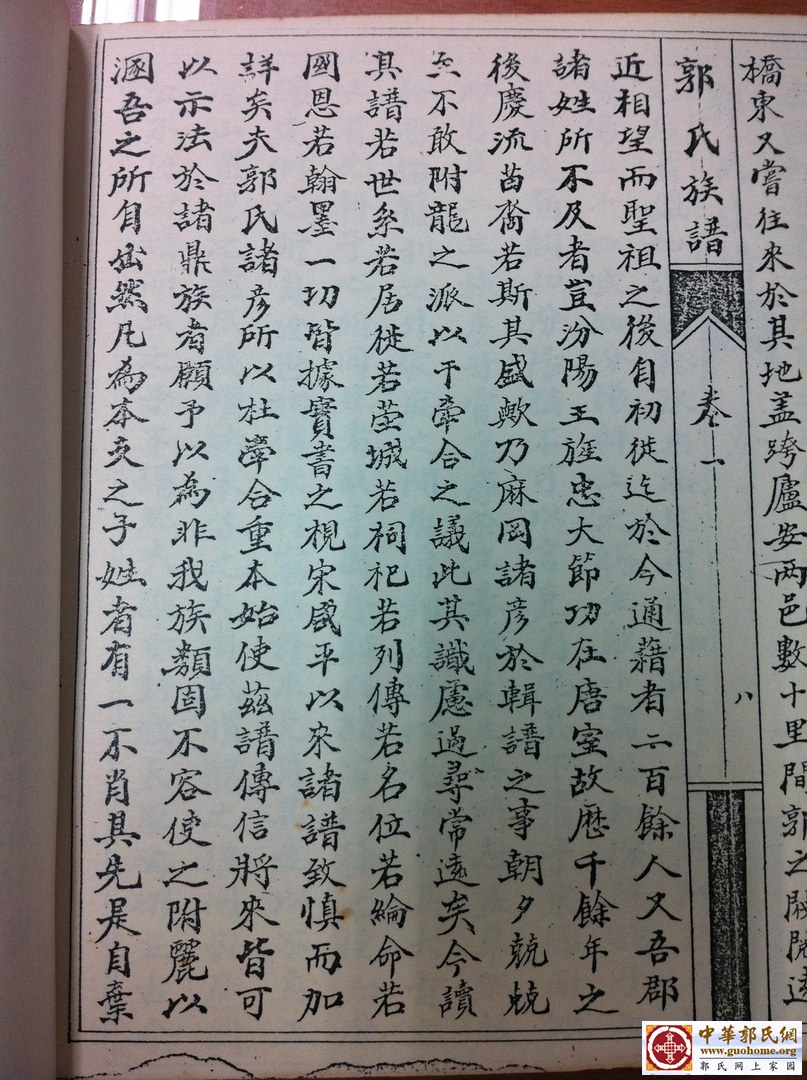 橋東又嘗往來於其地蓋跨廬安两邑數十里間郭之閥閱遠
郭氏族譜 卷一 八
近相望而聖祖之後自初徙迄於今通藉者二百餘人又吾郡
諸姓所不及者豈汾陽王旌忠大節功在唐室故歷千餘年之
後慶流苗裔若斯其盛歟乃麻岡諸彥於輯譜之事朝夕兢兢
並不敢附龍之派以干牽合之議此其識慮過尋常遠矣今讀
其譜若世系若居徙若塋城若祠祀若列傳若名位若綸命若
國恩若翰墨一切皆據實書之視宋咸平以來諸譜致慎而加
詳矣夫郭氏諸彥所以杜牽合重本始使茲譜傳信將來皆可
以示法於諸鼎族者顧予以為非我族類固不容使之附麗以
溷吾之所自出然凡為本支之子姓者有一不肖其先是自棄
中華郭氏網
www.guohome.org
郭氏网上家园